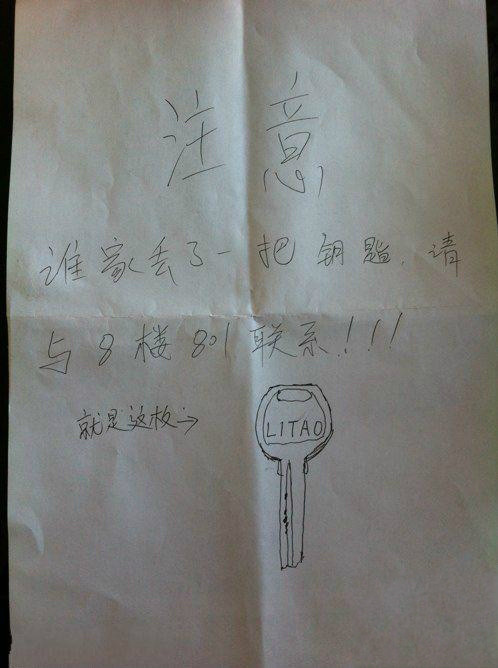 注意
谁家丢了一把钥匙，请
与8楼801联系!!!
就是这枚→
LITAO